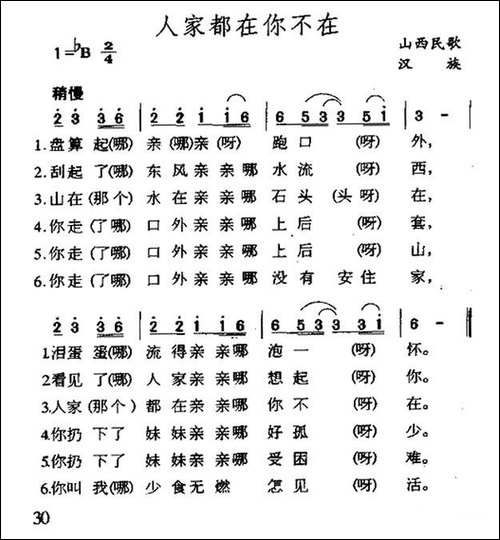 人家都在你不在
1=♭B 2/4
山西民歌
汉族
稍慢
2 3 3 6 | 2 2 1 1 6 | 6 5 3 3 5 1 | 3 - |
1.盘算起(哪)亲(哪)亲(呀)跑口(呀)外,
2.刮起了(哪)东风亲亲哪水流(呀)西,
3.山在(那个)水在亲亲哪石头(头呀)在,
4.你走(了哪)口外亲亲哪上后(呀)套,
5.你走(了哪)口外亲亲哪上后(呀)山,
6.你走(了哪)口外亲亲哪没有安住家,
2 3 3 6 | 2 2 1 1 6 | 6 5 3 3 3 1 | 6 - ‖
1.泪蛋蛋(哪)流得亲亲哪泡一(呀)怀。
2.看见了(哪)人家亲亲哪想起(呀)你。
3.人家(那个)都在亲亲哪你不(呀)在。
4.你扔下了妹妹亲亲哪好孤(呀)少。
5.你扔下了妹妹亲亲哪受困(呀)难。
6.你叫我(哪)少食无燃怎见(呀)活。
30